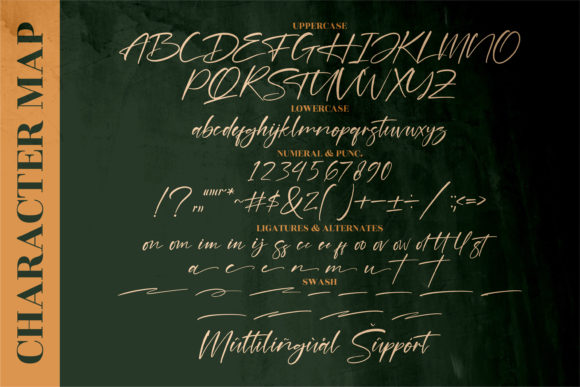 CHARACTER MAP
UPPERCASE
ABCDEFGHIJKLMNO
PQRSTUVWXYZ
LOWERCASE
abcdefghijklmnopqrstuvwxyz
NUMERAL & PUNC.
1234567890
!? ~#$&%( )+−±÷/:;<=>
LIGATURES & ALTERNATES
on om im in ij
a c e n m u t t
SWASH
Multilingual Support